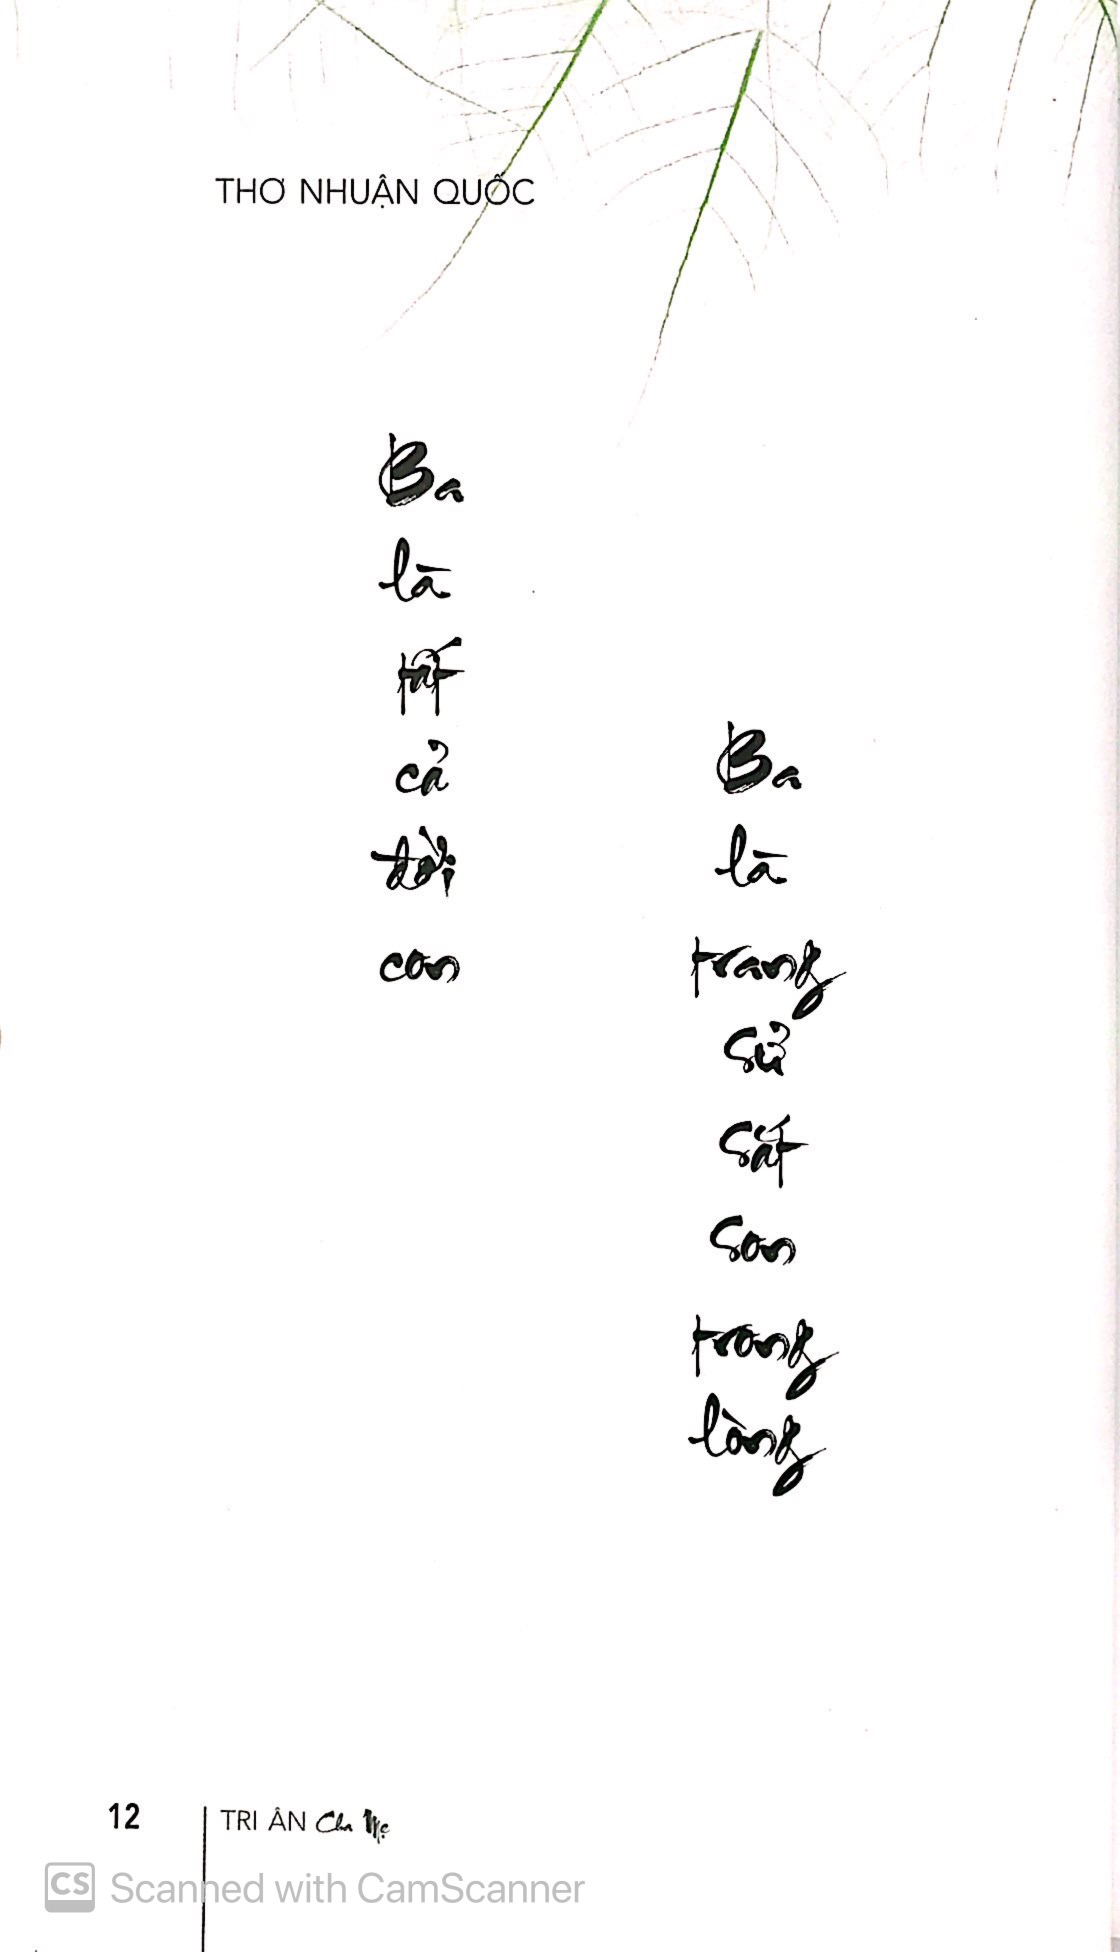 THƠ NHUẬN QUỐC
Ba
là
tất
cả
đời
con
Ba
là
trang
sử
sắt
son
trong
lòng
12
TRI ÂN Cha Mẹ
CS Scanned with CamScanner